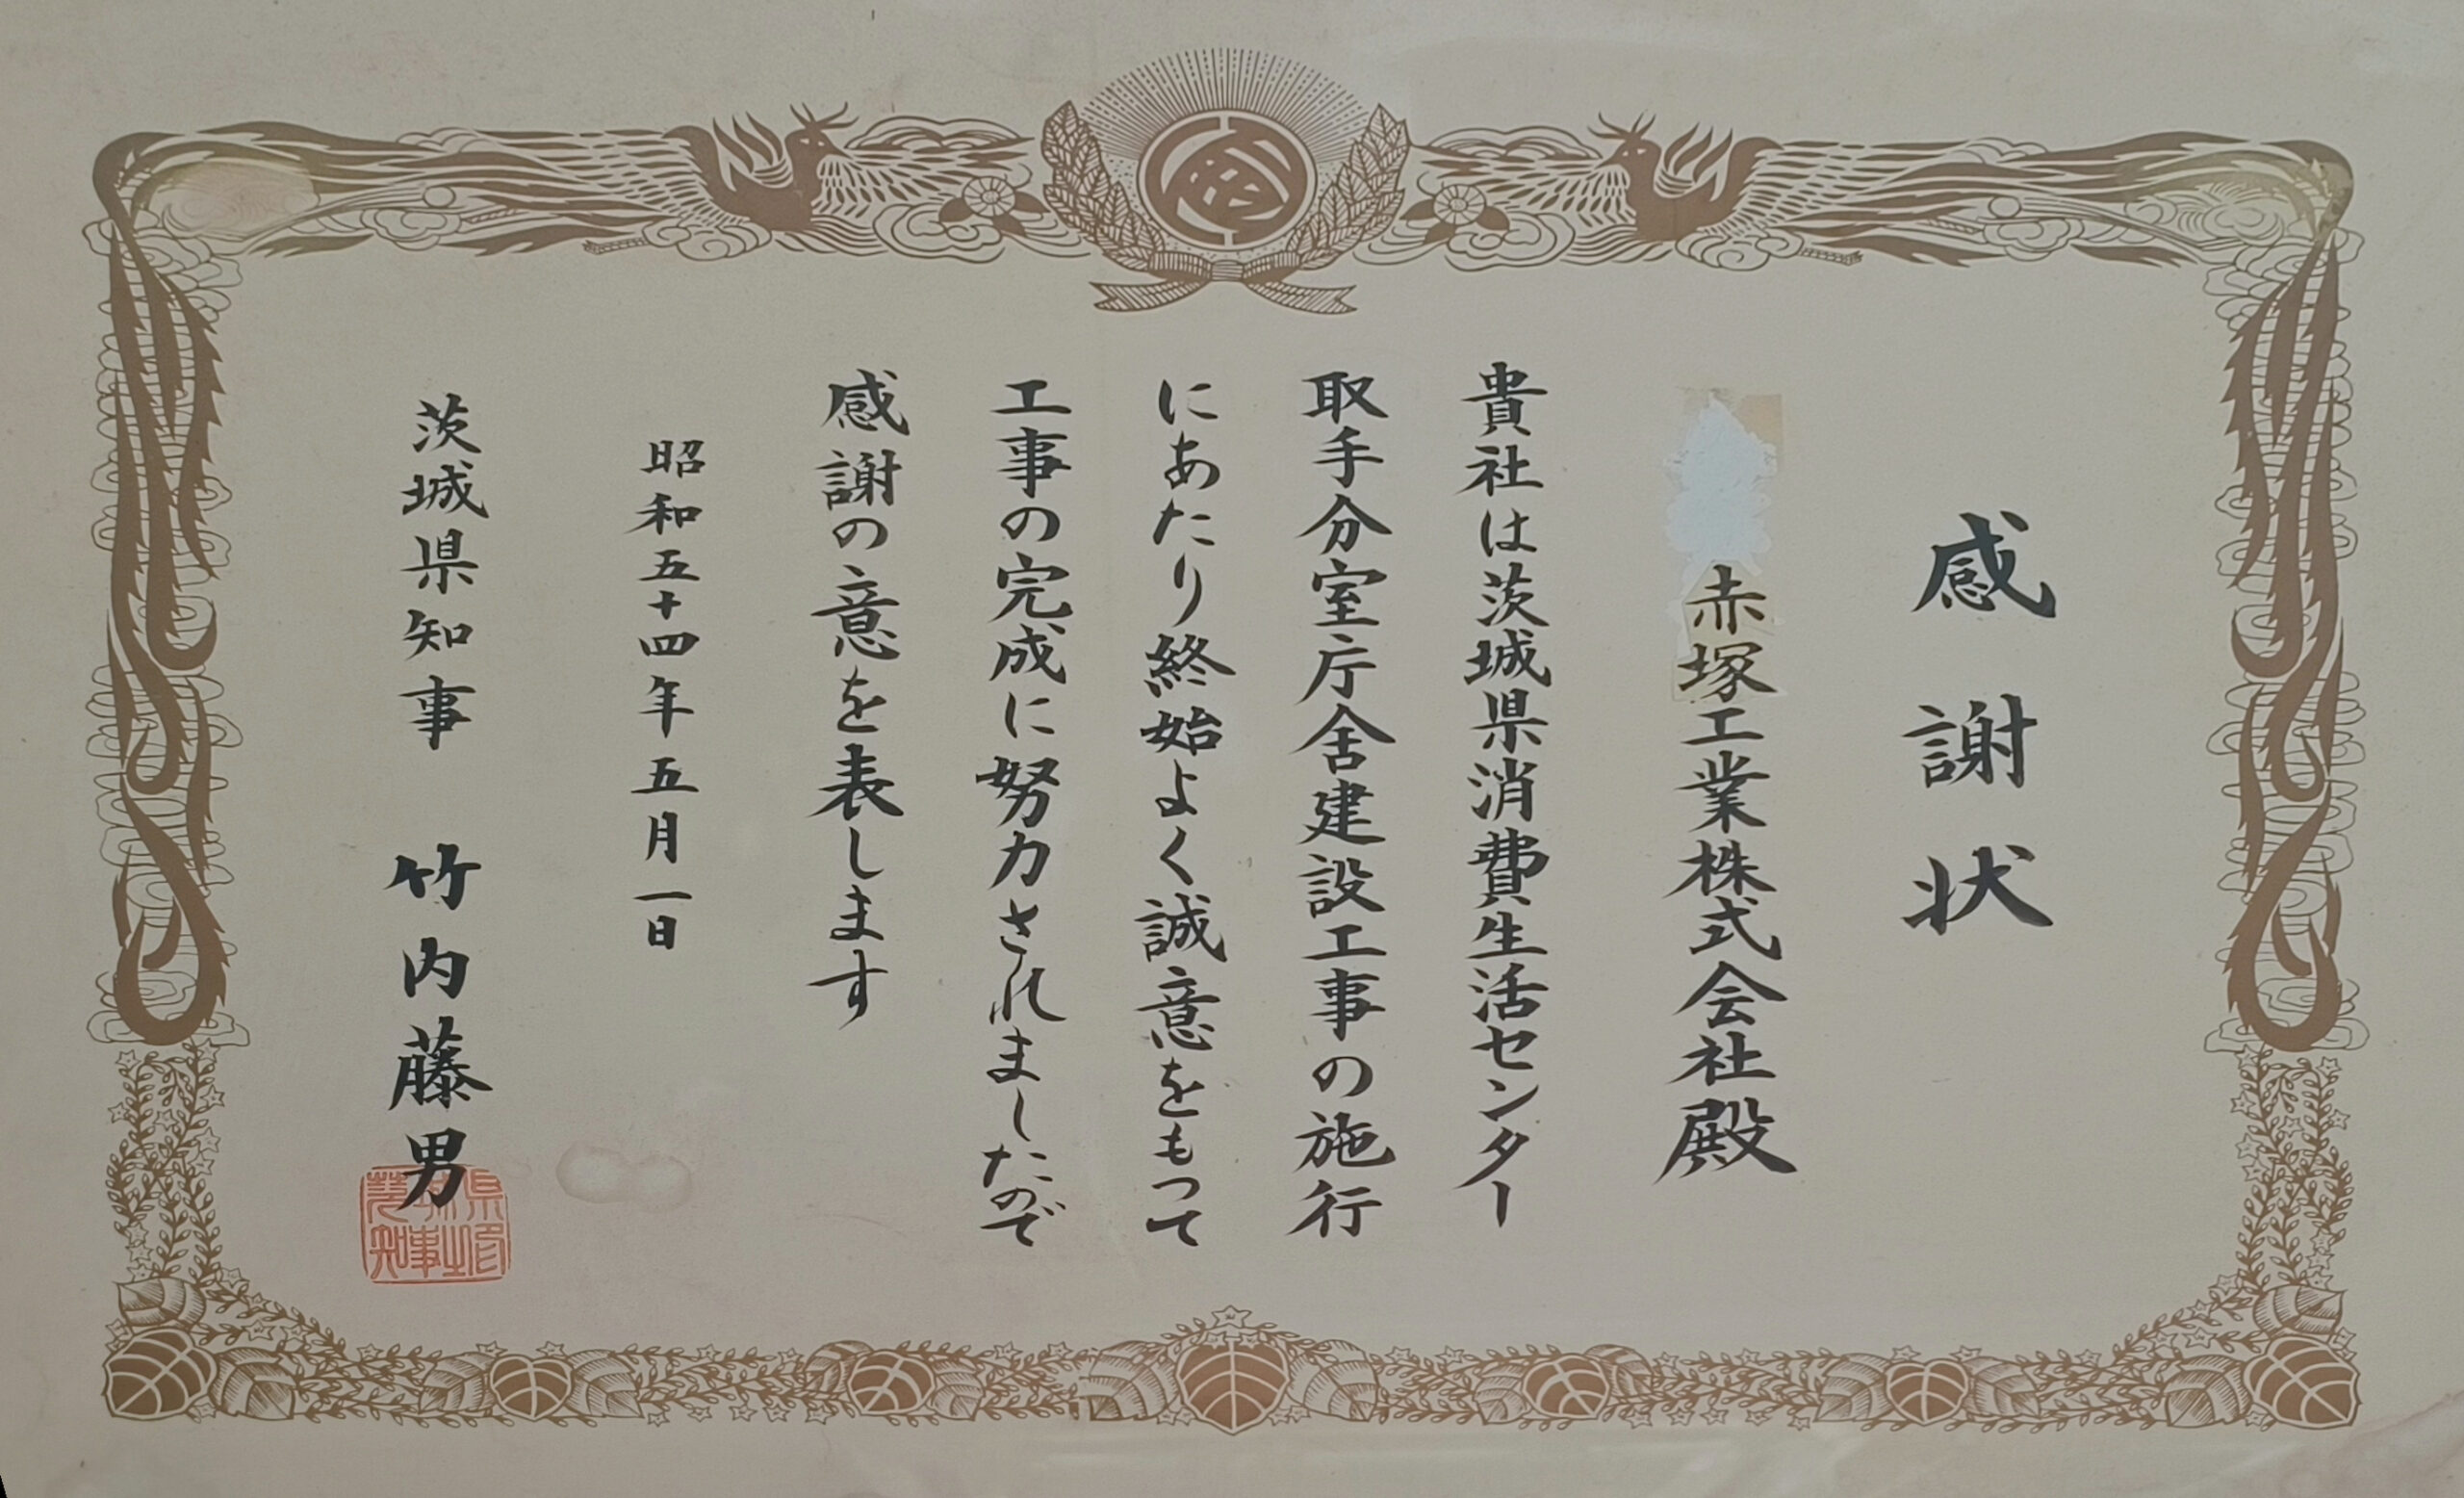 感謝状
赤塚工業株式会社殿
貴社は茨城県消費生活センター
取手分室庁舎建設工事の施行
にあたり終始よく誠意をもつて
工事の完成に努力されましたので
感謝の意を表します
昭和五十四年五月一日
茨城県知事 竹内藤男